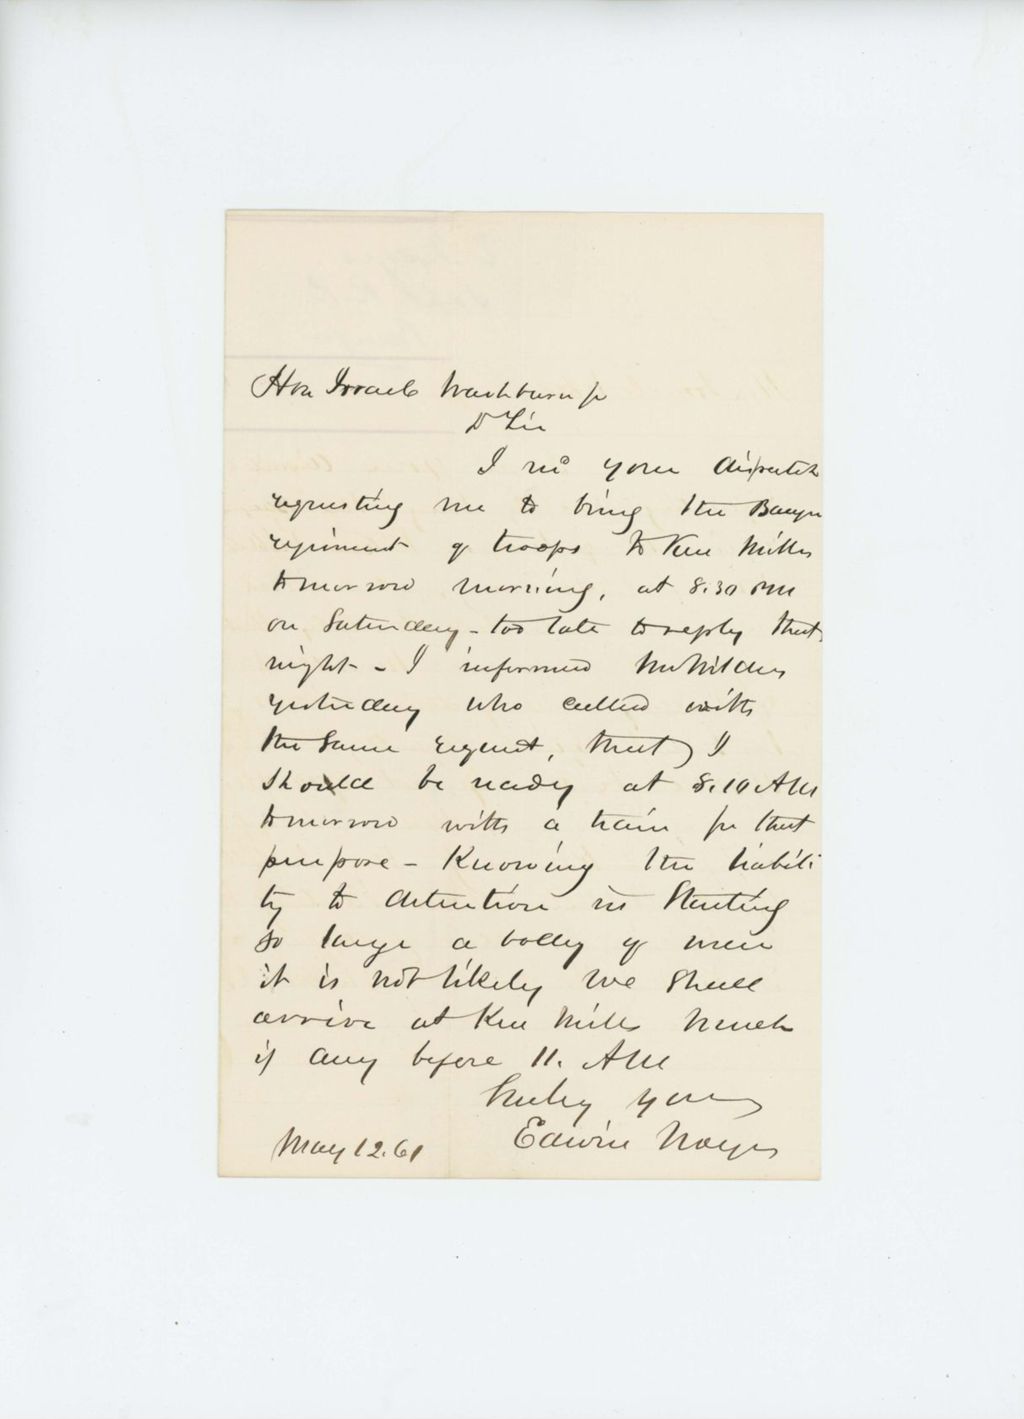 Hon Israel Washburn jr
D Sir
I recd your dispatch
requesting me to bring the Bangor
regiment of troops to Ken Mills
tomorrow morning, at 8.30 PM
on Saturday - too late to reply that
night - I informed Mr Wilder
yesterday who called with
the same request, that I
should be ready at 8.10 AM
tomorrow with a train for that
purpose - Knowing the liabili
ty to detention in Starting
so large a body of men
it is not likely we shall
arrive at Ken Mills much
if any before 11. AM
Truly yours
Edwin Noyes
May 12. 61